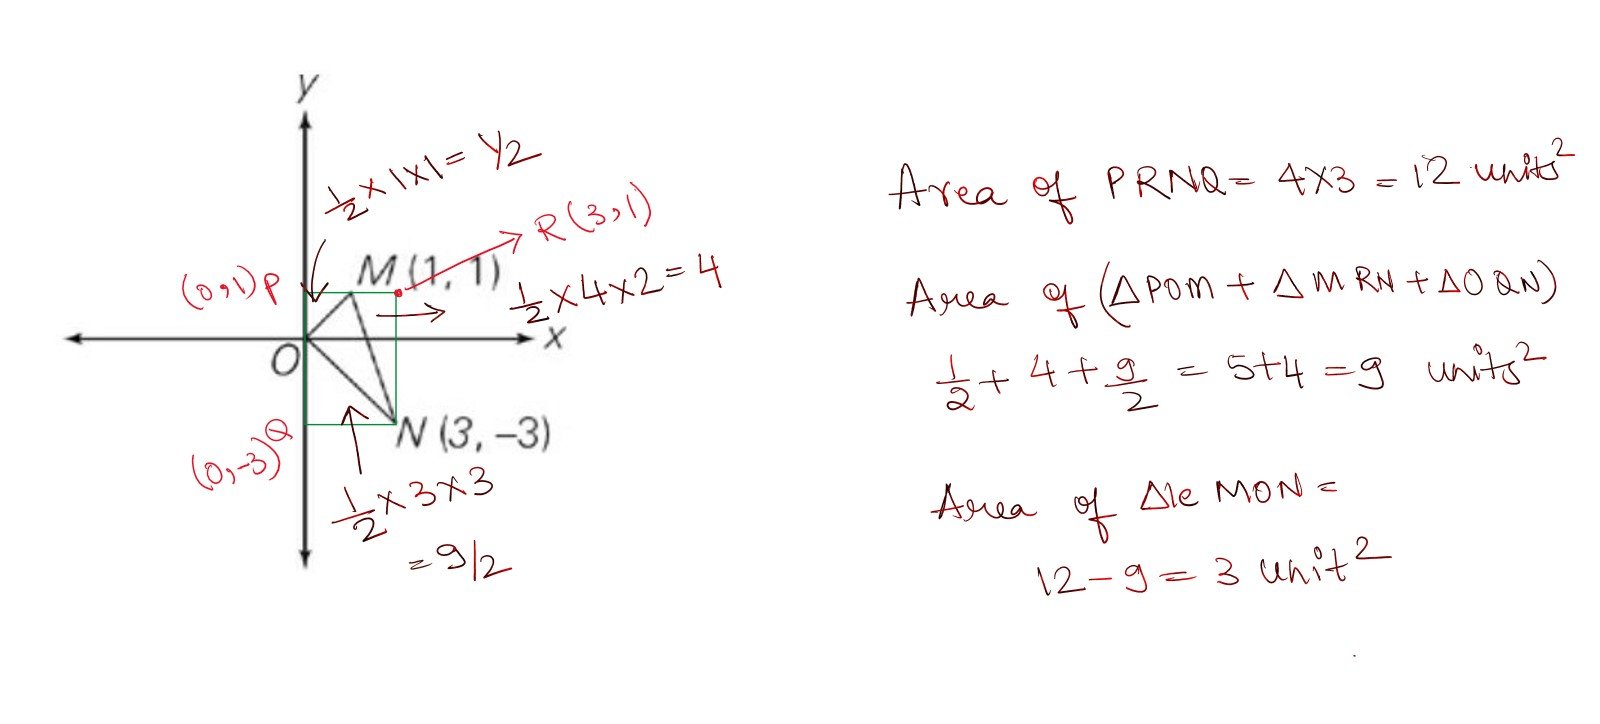 y
½ × 1 × 1 = 1/2
R(3,1)
(0,1) P
M (1, 1)
½ × 4 × 2 = 4
x
O
(0,-3) Q
N (3, –3)
½ × 3 × 3
= 9/2
Area of PRNQ = 4×3 = 12 units²
Area of (ΔPOM + ΔMRN + ΔOQN)
1/2 + 4 + 9/2 = 5+4 = 9 units²
Area of Δle MON =
12 – 9 = 3 unit²